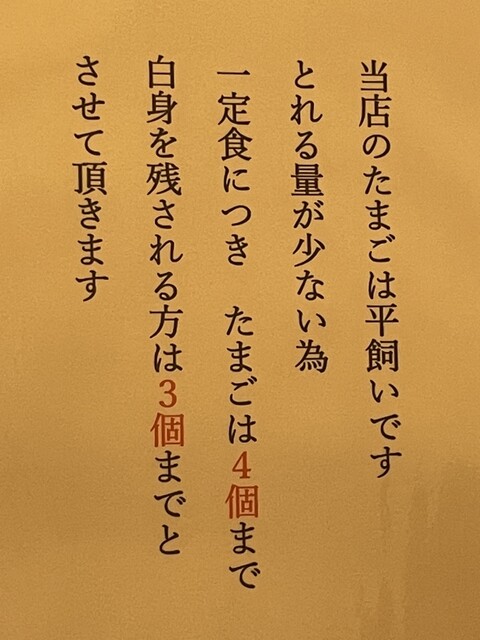 当店のたまごは平飼いです
とれる量が少ない為
一定食につき　たまごは4個まで
白身を残される方は3個までと
させて頂きます